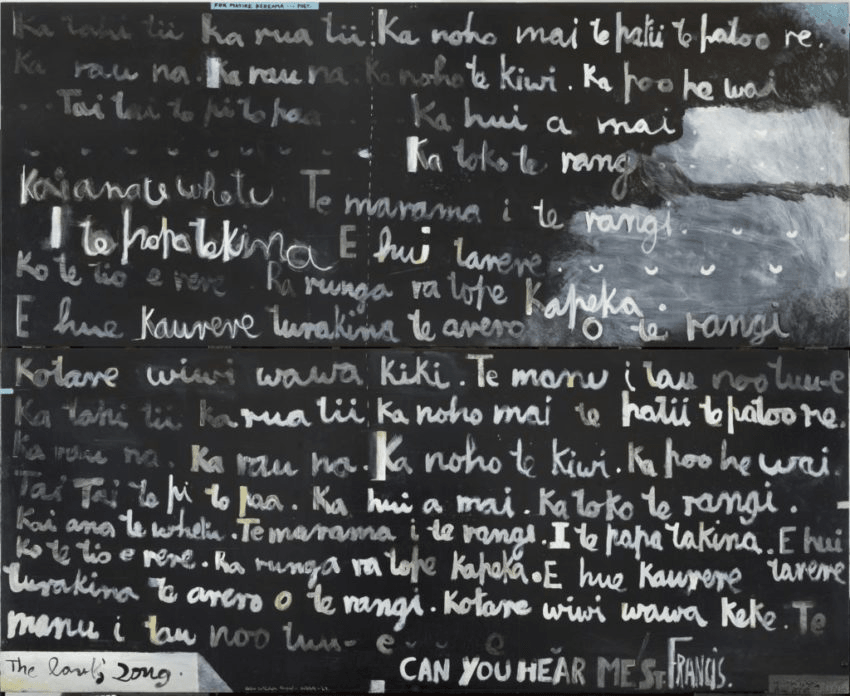 FOR MATIRE KEREAMA ... POET.
Ka tahi tii Ka rua tii. Ka noho mai te patii te patoo re.
Ka rau na. Ka rau na. Ka noho te kiwi. Ka poo he wai
Tai tai to pi to paa Ka hui a mai
Ka toko te rangi
Kai ana te whetu. Te marama i te rangi.
I te papa takina E hui tarere.
Ko te tio e rere Ra runga ra tope Kapeka.
E hue Kaurere turakina te arero o te rangi
Kotare wiwi wawa kiki. Te manu i tau noo tuu-e
Ka tahi tii Ka rua tii Ka noho mai te patii te patoo re.
Ka rau na. Ka rau na. Ka noho te kiwi. Ka poo he wai.
Tai Tai to pi to paa. Ka hui a mai. Ka toko te rangi.
Kai ana te whetu. Te marama i te rangi. I te papa takina. E hui
Ko te tio e rere. Ra runga ra tope Kapeka. E hue Kaurere tarere
turakina te arero o te rangi. Kotare wiwi wawa Keke. Te
manu i tau noo tuu- e
The Lark's Zong. CAN YOU HEAR ME ST. FRANCIS.